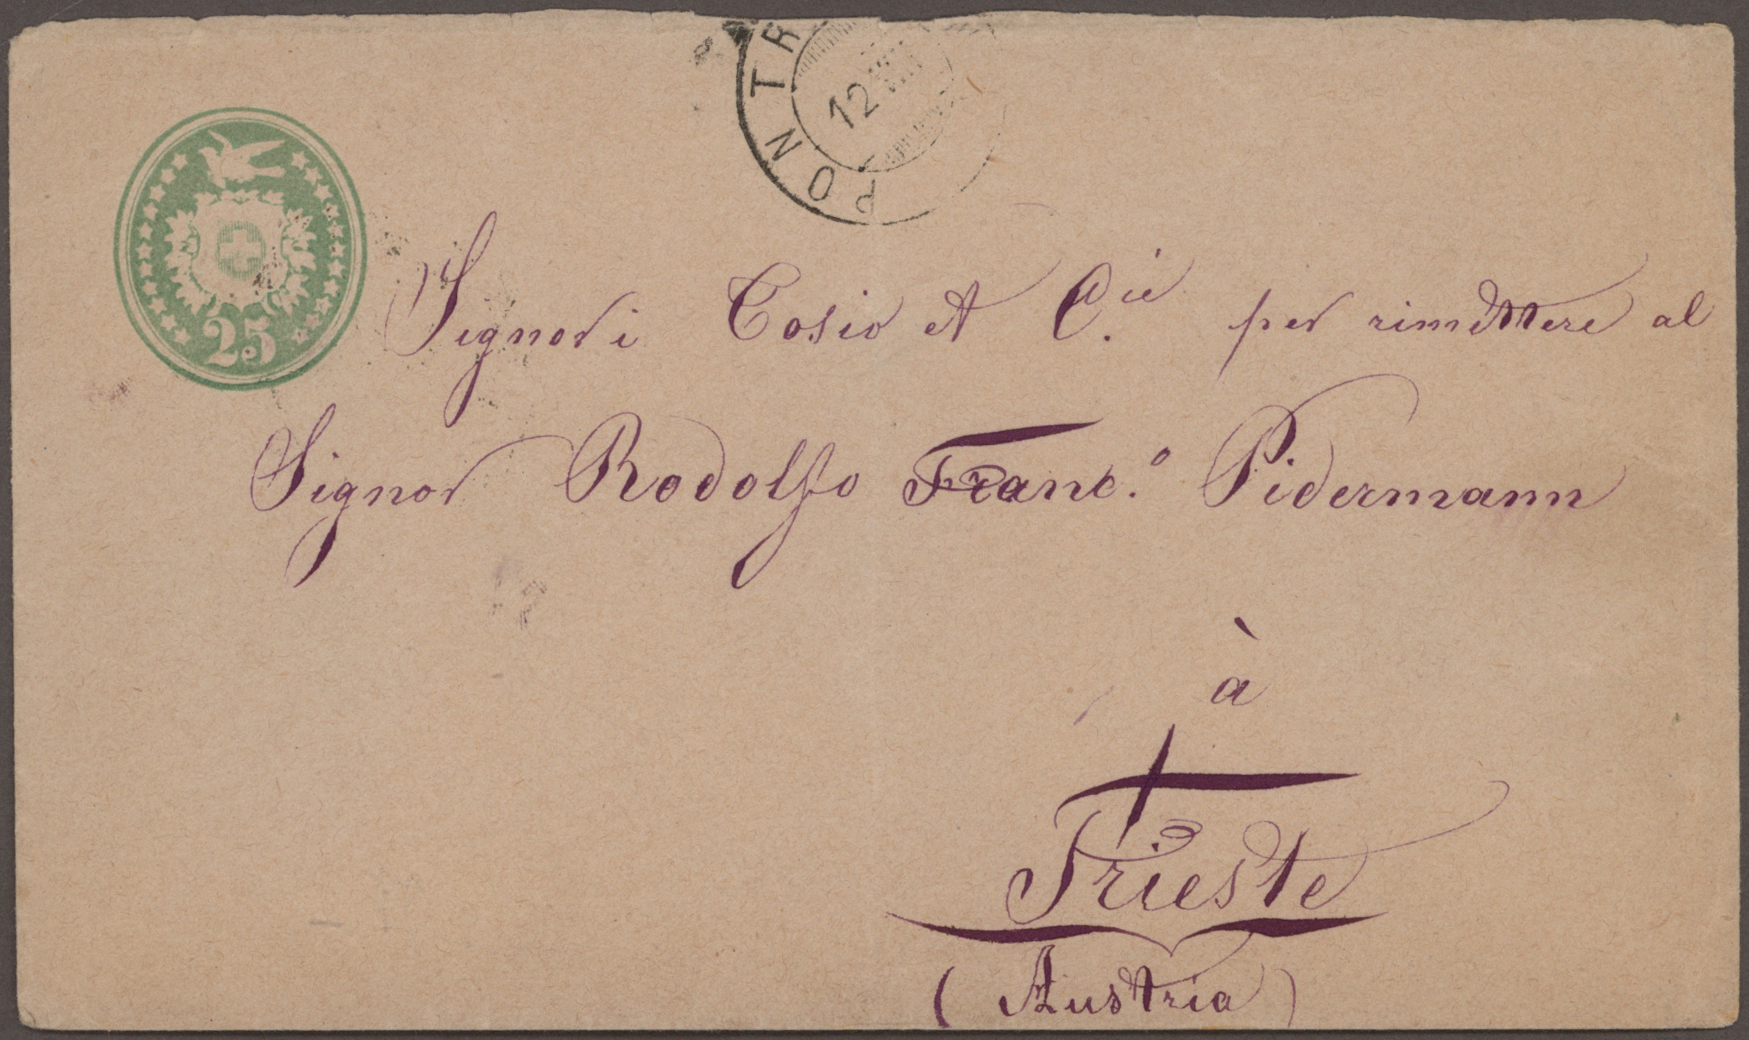 PONTR
12 VIII
25
Signori Cosio et C.ie per rimettere al
Signor Rodolfo Franc.o Pidermann
à
Trieste
(Austria)